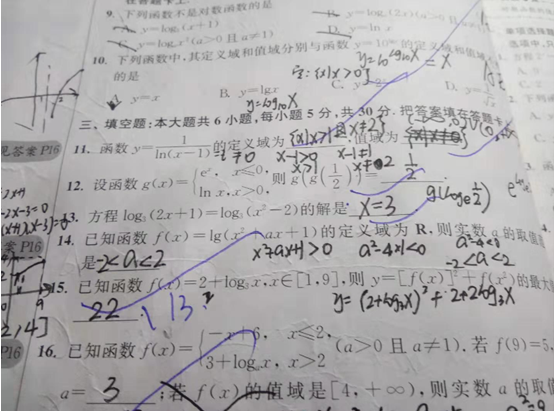 9. 下列函数不是对数函数的是
A. y=log₂(x+1) B. y=logₐ(2x)(a>0且
C. y=logₐx²(a>0且a≠1) D. y=ln x
10. 下列函数中,其定义域和值域分别与函数 y=10^lg x 的定义域和值域
的是
y=10^log₁₀X = X
定:{x|x>0}
A. y=x B. y=lg x C. y=2ˣ D. y=
y=log₁₀X
三、填空题:本大题共 6 小题,每小题 5 分,共 30 分. 把答案填在答题卡
11. 函数 y=1/ln(x-1) 的定义域为 {x|x>1且x≠2},值域为 {x|x≠0}
≠0 x-1>0 x-1≠1
x>1 x≠2
12. 设函数 g(x)={eˣ, x≤0, ln x, x>0, 则 g(g(1/2))= 1/2
g(logₑ 1/2)
13. 方程 log₃(2x+1)=log₃(x²-2)的解是 x=3
14. 已知函数 f(x)=lg(x²-ax+1)的定义域为 R,则实数 a 的取值
是 -2<a<2 x²-ax+1>0 a²-4×1<0 a²-4<0
-2<a<2
15. 已知函数 f(x)=2+log₃x,x∈[1,9],则 y=[f(x)]²+f(x²)的最大
22 13 ? y=(2+log₃X)²+2+2log₃X
16. 已知函数 f(x)={-x+6, x≤2, 3+logₐx, x>2 (a>0 且 a≠1). 若 f(9)=5,
a= 3 ;若 f(x)的值域是[4,+∞),则实数 a 的取
见答案 P16
案 P16
P16
2,4]